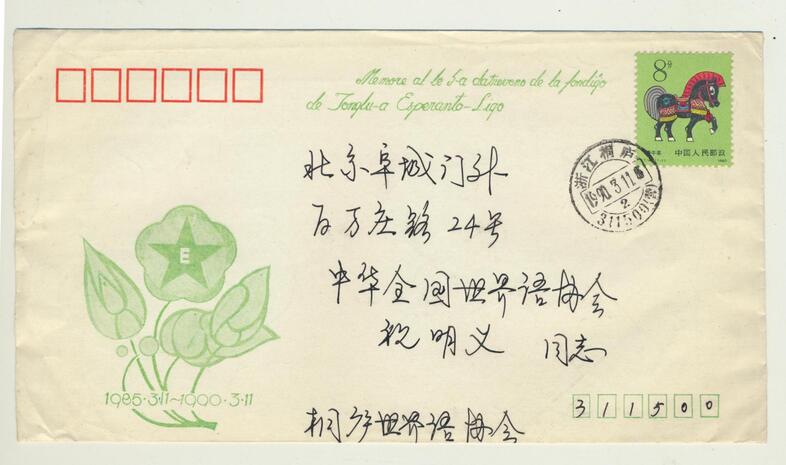 Memore al le 5-a datreveno de la fondiĝo
de Tonglu-a Esperanto-Ligo
8分
庚午年
中国人民邮政
1990
浙江桐庐
1990.3.11
2
311500(营)
北京阜城门外
百万庄路24号
中华全国世界语协会
祝明义 同志
E
1985·3·11~1990·3·11
桐庐世界语协会
311500